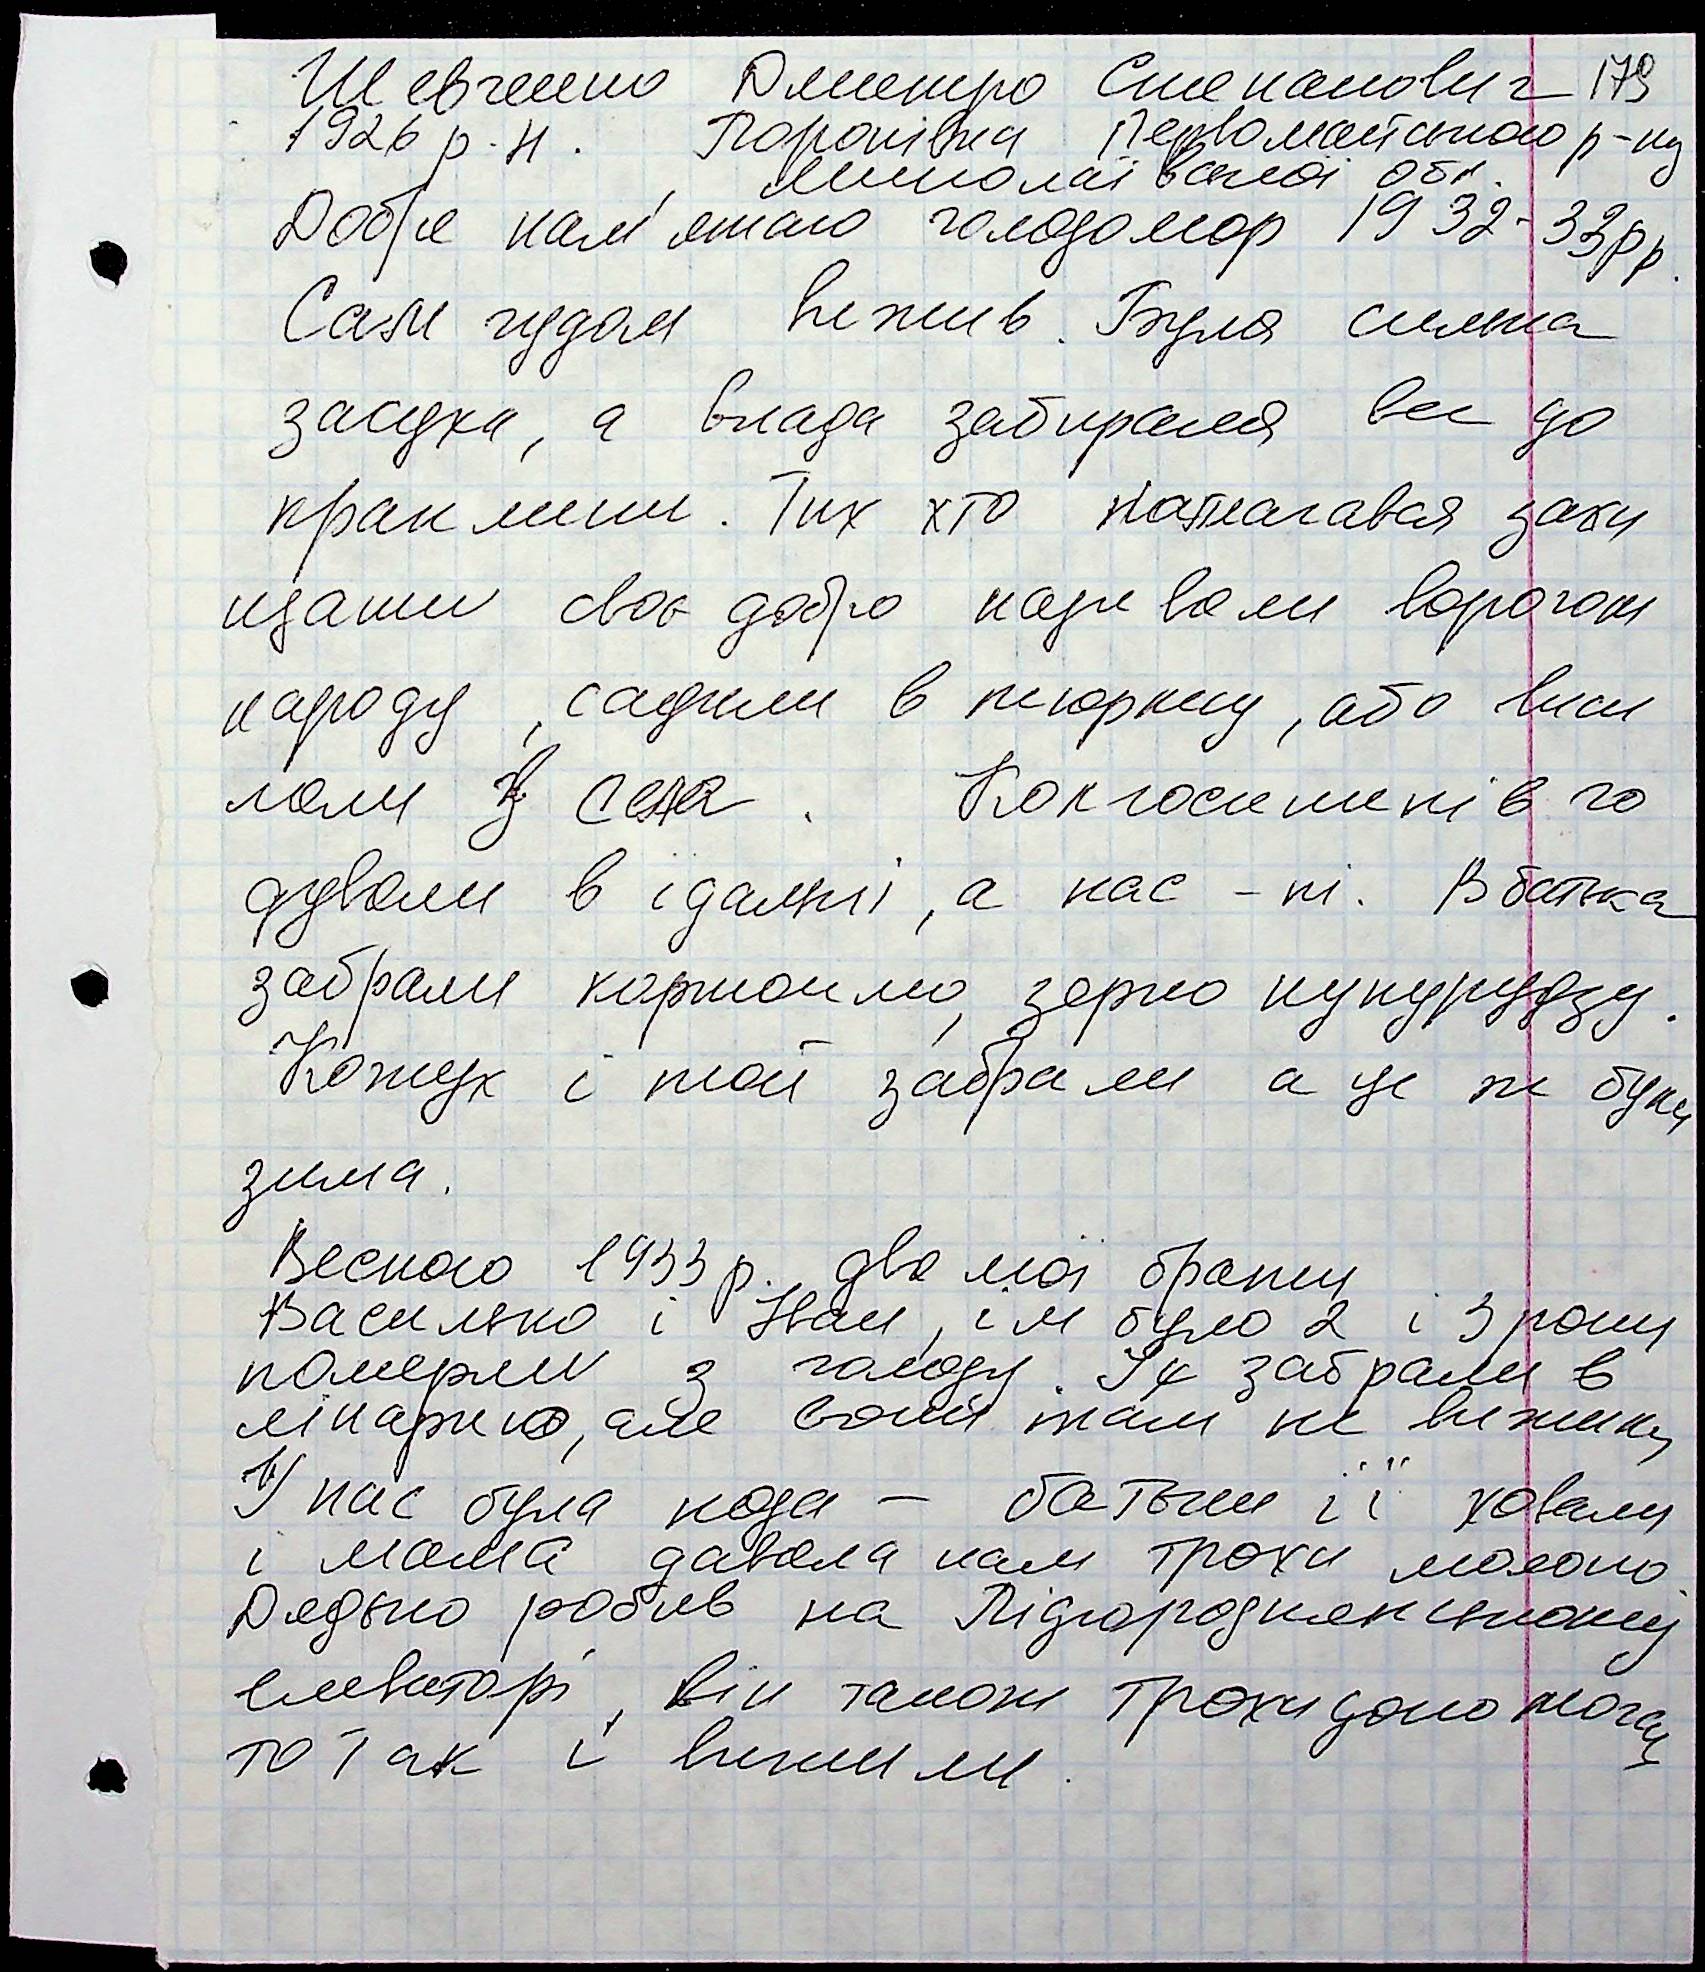 Шевченко Дмитро Степанович 179
1926 р.н. Пороківка Первомайського р-ну
Миколаївської обл.
Добре пам'ятаю голодомор 1932-33рр.
Сам чудом вижив. Була сильна
засуха, а влада забирала все до
краплини. Тих хто намагався захи
щати своє добро називали ворогом
народу, садили в тюрьму, або виси
лали з села. Колгоспників го
дували в їдальні, а нас - ні. В батька
забрали картоплю, зерно кукурудзу.
Кожух і той забрали а це ж була
зима.
Весною 1933р. два мої брати
Василько і Іван, їм було 2 і 3 роки
померли з голоду. Їх забрали в
лікарню, але вони там не вижили
У нас була коза - батьки її ховали
і мама давала нам трохи молоко
Дядько робив на Підгороднянському
елеваторі, він також трохи допомагав
то так і вижили.